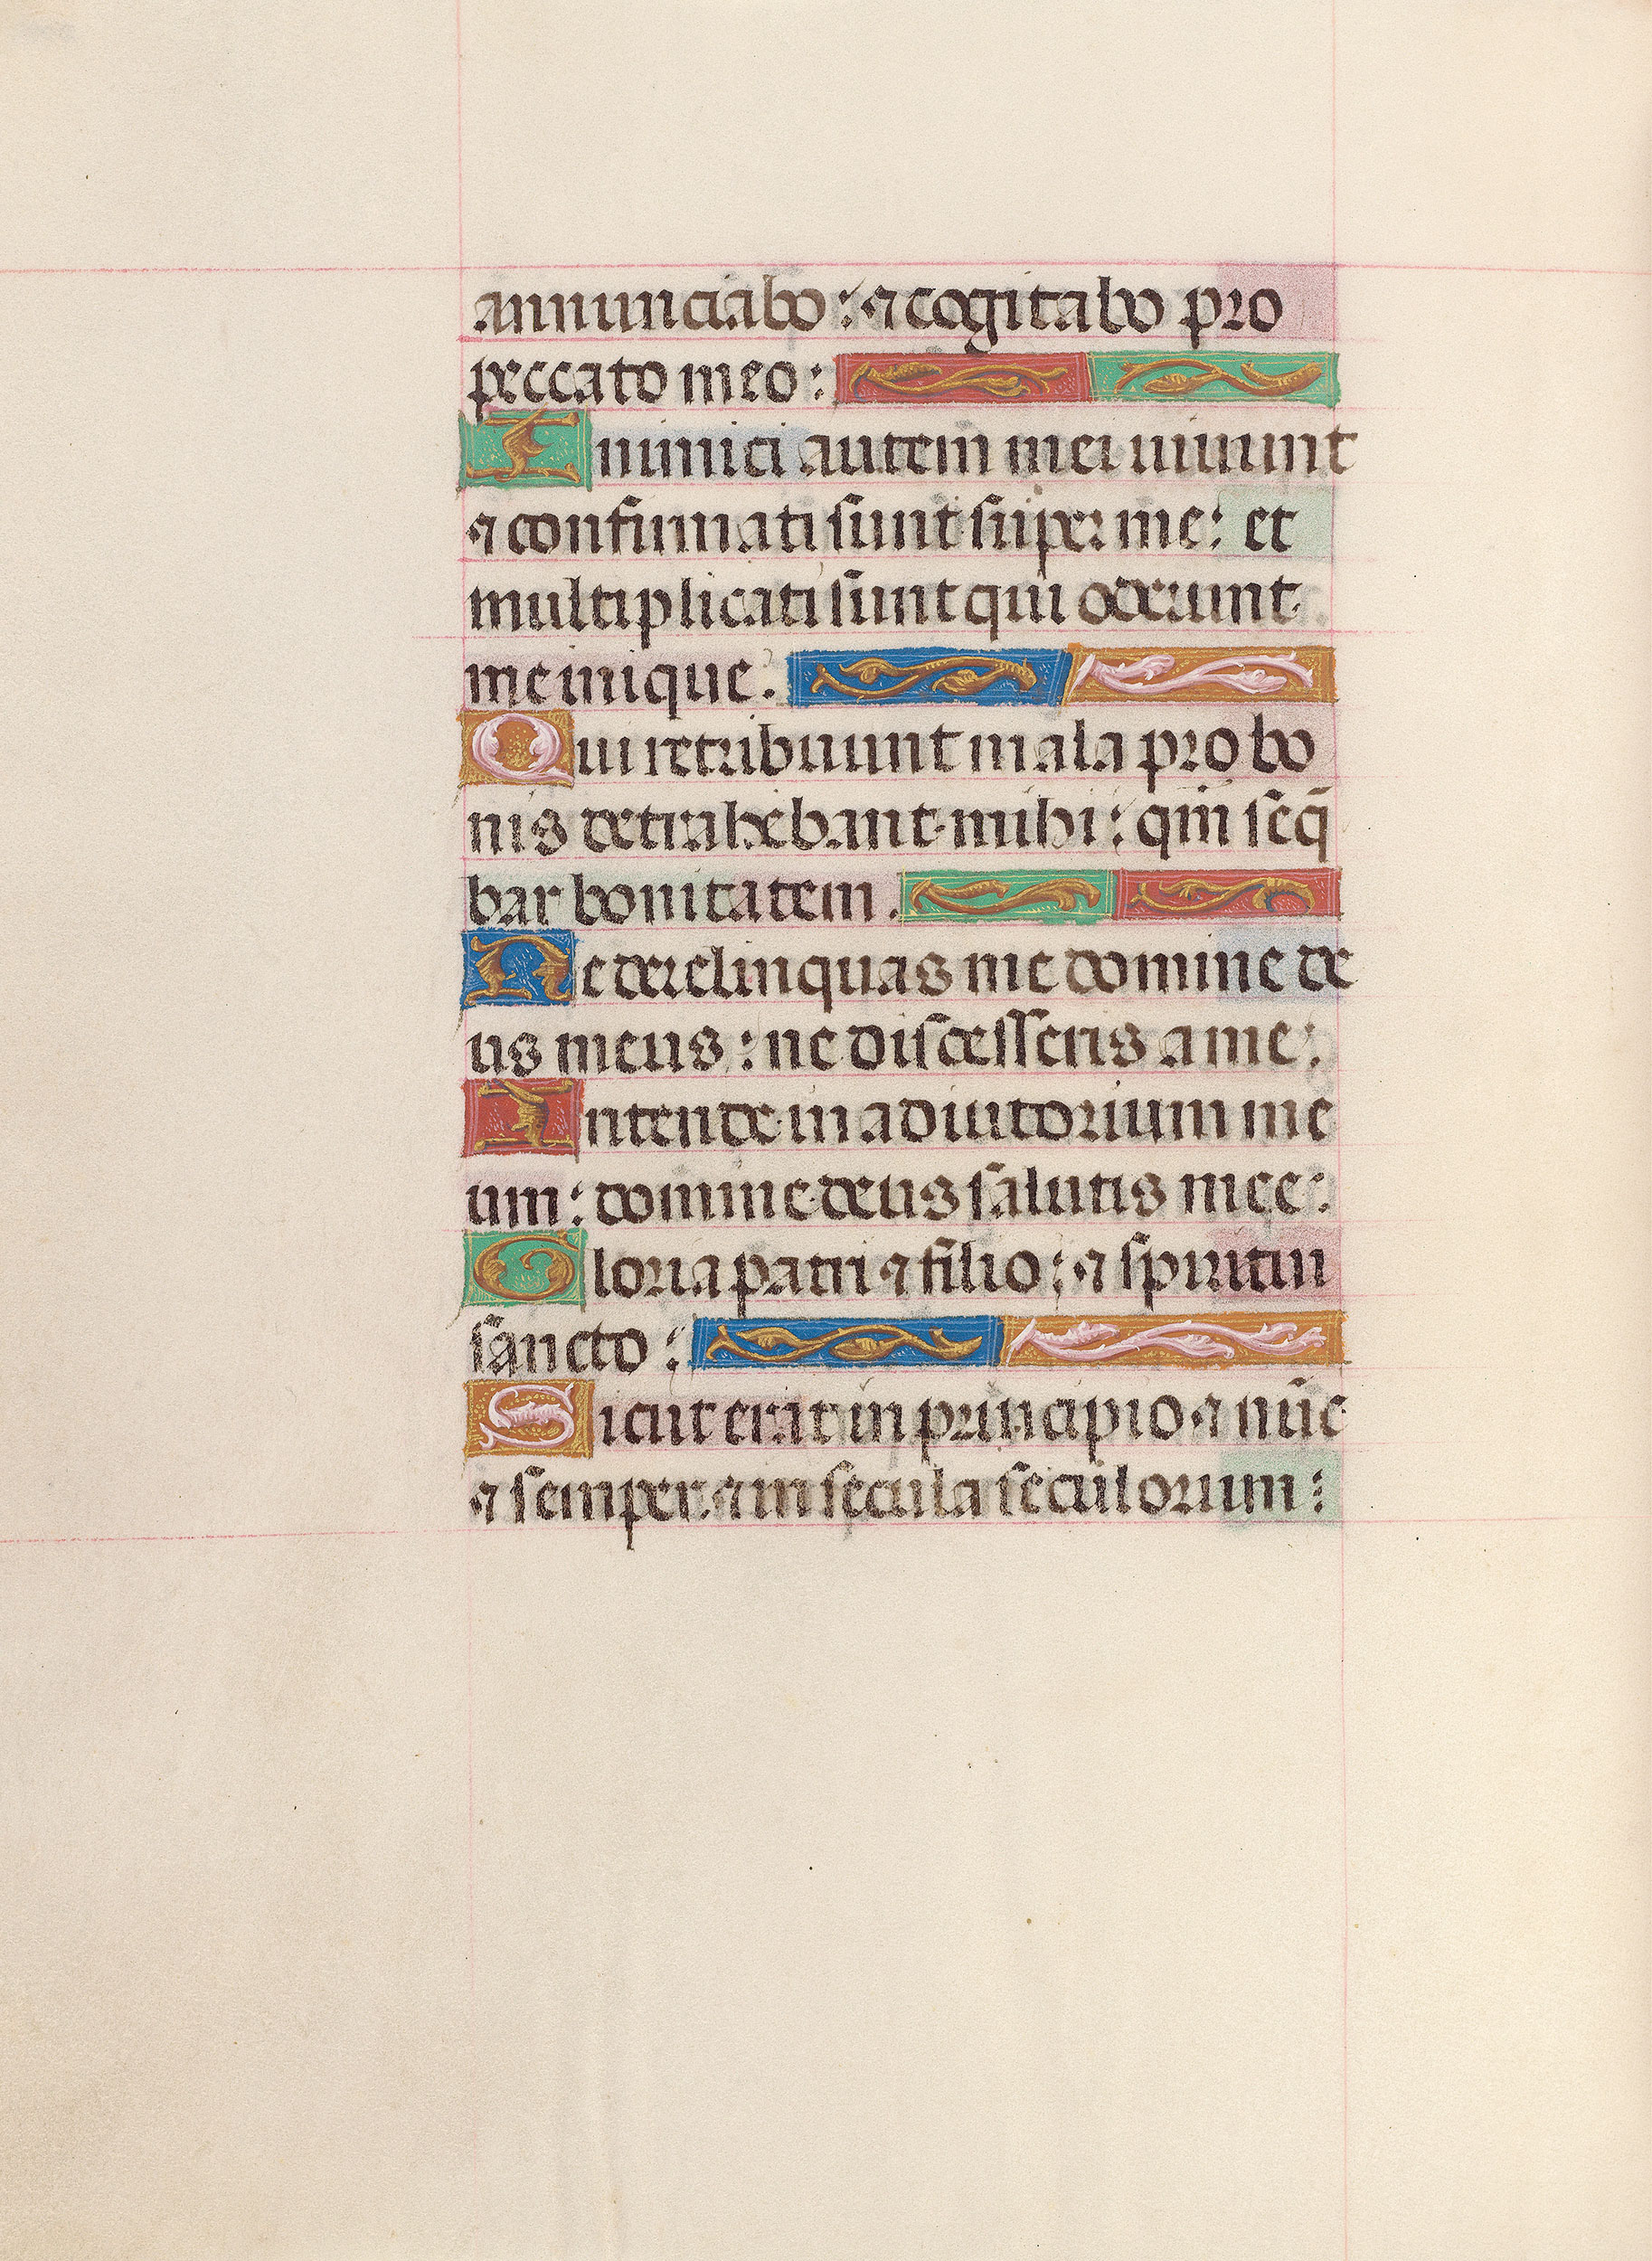 annunciabo : ⁊ cogitabo pro
peccato meo :
Inimici autem mei uiuunt
⁊ confirmati sunt super me : et
multiplicati sunt qui oderunt
me inique .
Qui retribuunt mala pro bo
nis detrahebant mihi : qm̄ seq̄
bar bonitatem .
Ne derelinquas me domine de
us meus : ne discesseris a me :
Intende in adiutorium me
um : domine deus salutis mee :
Gloria patri ⁊ filio : ⁊ spiritui
sancto :
Sicut erat in principio ⁊ nūc
⁊ semper ⁊ in secula seculorum :